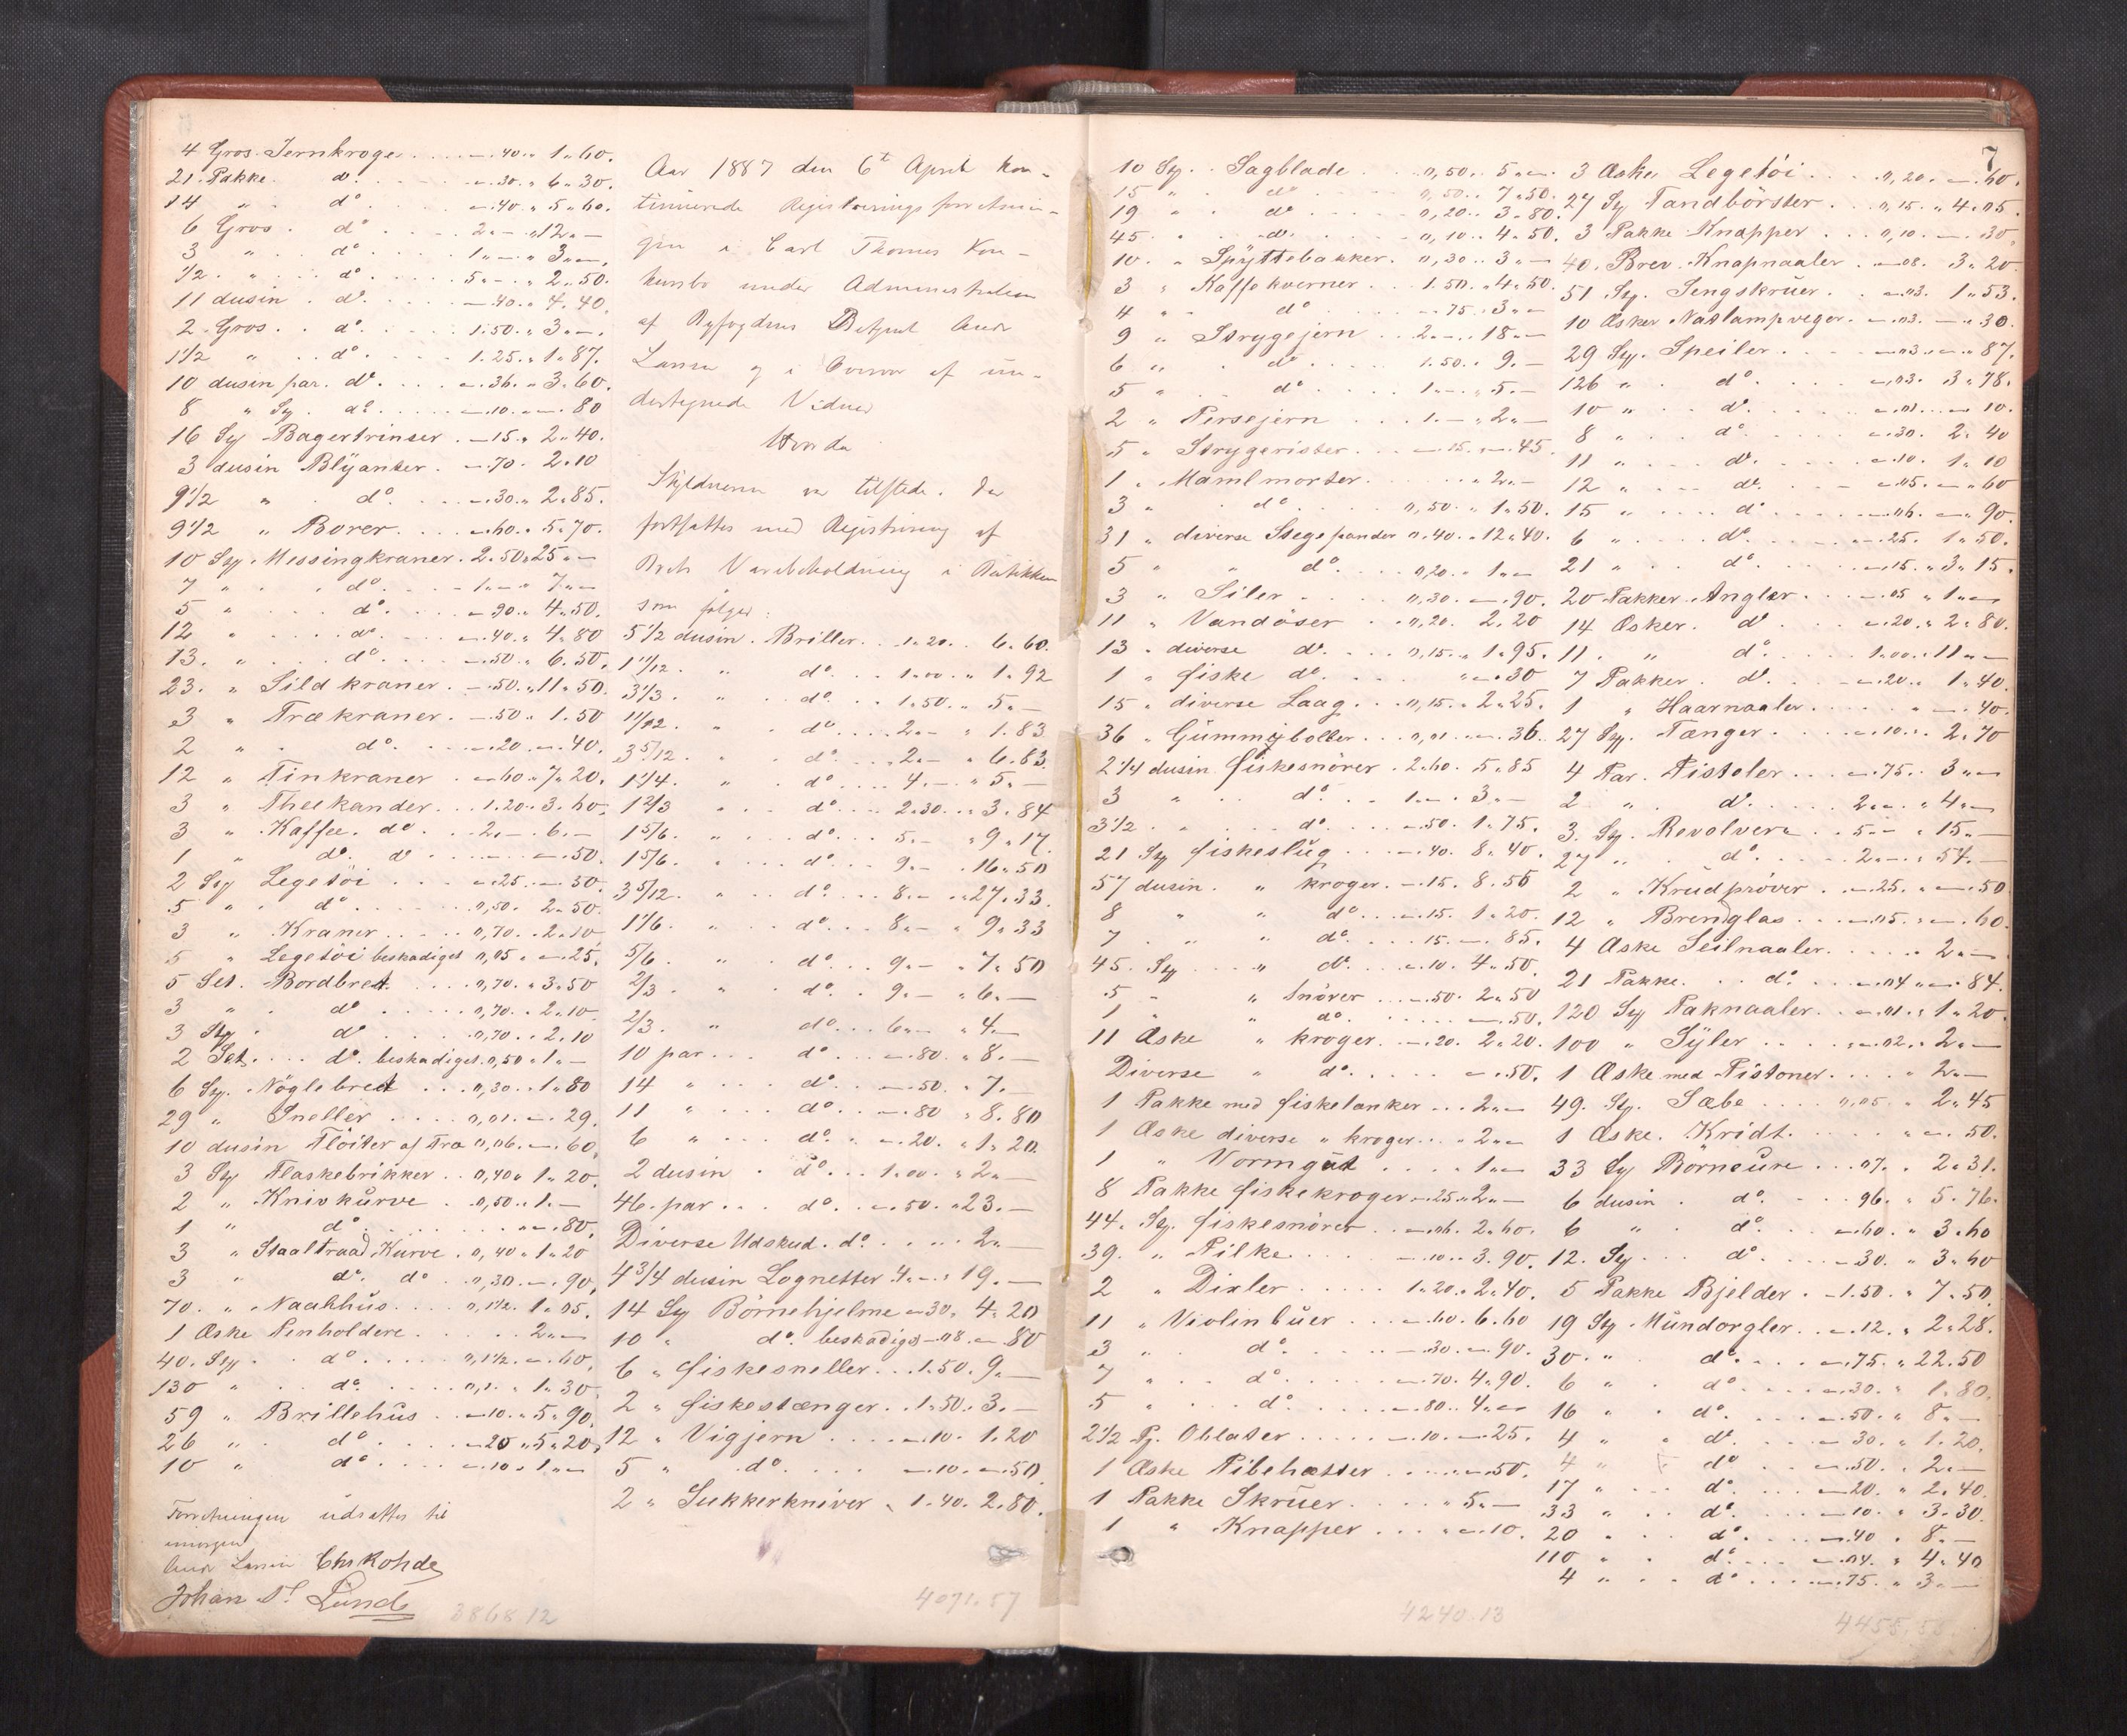 4 Gros Jernkroge . . . . —.40. „ 1„60.
21 Pakke d⁰. . . . . —.30. „ 6„30.
14 „ d⁰ . . . . —.40. „ 5„60.
6 Gros . d⁰ . . . . 2„— „12„—
3 „ . . d⁰ . . . . 1„— „ 3„—.
1/2 . „ . . d⁰ . . . . 5„— . „ 2„50.
11 dusin . d⁰. . . . —.40. „ 4„40.
2 Gros . . d⁰. . . . 1.50. „ 3„—.
1 1/2 „ . . d⁰. . . . 1.25. „ 1„87.
10 dusin par. d⁰. . . . —.36. „ 3„60.
8 „ Sty. d⁰. . . . —.10. „ —.80
16 Sty Bagertrinser . —15. „ 2„40.
3 dusin Blyanter . —.70. 2„10
9 1/2 „ . d⁰. . . —.30. „ 2„85.
9 1/2 „ Borer. . . . —.60. „ 5„70.
10 Sty. Messingkraner. 2.50„25„—
7 „ . . d⁰. . . 1„— „ 7„—
5 „ . . d⁰. . . —90. „ 4„50.
12 „ . . d⁰. . . —.40. „ 4„80
13. „ . . d⁰. . . —.50. „ 6.50.
23. „ Sildkraner. —.50. „11„50.
3 „ Trækraner. —.50„ 1.50
2 „ . d⁰. . . —.20. —.40.
12 „ Tinkraner . —60. „ 7„20.
3 „ Theekander. . 1.20„ 3„60.
3 „ Kaffee. d⁰ . . 2„— . 6„—
1 „ d⁰. d⁰ . . . —.50.
2 Sty Legetöi . . . —.25. —.50.
5 „ . d⁰. . . . 0,50. 2„50.
3 „ Kraner . . . 0,70. „ 2„10
5 „ Legetöi beskadiget 0,05 „ —.25.
5 Set. Bordbret. . . . 0,70. „ 3„50
3 „ . d⁰ . . . . 0,70. „ 2.10.
3 Sty . d⁰ . . . . 0,70. „ 2.10
2 Set. . . . d⁰. beskadiget. 0,50„ 1„—
6 Sty. Nöglebret . . . 0,30. „ 1„80
29 „ Sneller . . . . 0,01. —. 29.
10 dusin Flöiter af Træ 0,06. —. 60.
3 Sty Flaskebrikker . . 0,40„ 1„20.
2 „ Knivkurve . . 0,50. „ 1.—
1 „ d⁰. . . . . . „—.80.
3 „ Staaltraad Kurve . 0,40„ 1„20
3 „ d⁰. d⁰ . 0,30. —.90.
70. „ Naalhus. . . . 0,1 1/2. 1„05.
1 Æske Penholdere . . . . . 2„—
40. Sty . . d⁰. . . . 0,1 1/2. —.60.
130 „ . . d⁰. . . . 0,1. „ 1„30.
59 „ Brillehus . . —.10. „ 5„90.
26 „ . d⁰. . . . —20„ 5„20.
10 „ . d⁰. . . . —.10„ 1„—
Forretningen udsattes til
imorgen
And Larsen Chr Rohde
Johan St. Lund
3868 12
Aar 1887 den 6te April kon-
tinuerede Registreringsforretnin-
gen i Carl Thomes Kon-
kursbo under Administration
af Byfogdens Betjent And
Larsen og i Overvær af un-
dertegnede Vidner
Hvorda
Skyldneren var tilstede. Der
fortsattes med Registrering af
Boets Varebeholdning i Butikken
som følger:
5 1/2 dusin. Briller. . 1„20. . 6„60.
1 11/12. „ . d⁰. . . 1„00. „ 1„92
3 1/3. „ . d⁰. . . 1„50. „ 5„—
11/12. „ . d⁰. . . 2„— „ 1.83
3 5/12. „ . d⁰. . . 2„— „ 6„83.
1 1/4. „ . d⁰. . . 4.— „ 5„—
1 2/3 „ . d⁰. . . 2.30. „ 3„84
1 5/6. „ . d⁰. . . 5„— „ 9„17.
1 5/6. „ . d⁰. . . 9„— . 16„50
3 5/12. „ . d⁰. . . 8„— „27„33.
1 1/6. „ . d⁰. . . 8„— „ 9„33
5/6. „ . d⁰. . . 9„— „ 7„50
2/3. „ . d⁰. . . 9„— „ 6„—
2/3. „ . d⁰. . . 6„— „ 4„—
10 par . . . d⁰. . . —.80. „ 8.—
14 „ . . . d⁰. . . —.50. „ 7.—
11 „ . . . d⁰. . . —.80 „ 8.80
6 „ . . . d⁰. . . —.20. „ 1„20.
2 dusin . d⁰. . . 1„00. „ 2„—
46. par . . . d⁰. . —.50. „23.—
Diverse Udskud. d⁰. . . . . 2„
4 3/4 dusin Lognetter 4„— „ 19.—
14 Sty Börnehjelme —30. 4„20
10 „ d⁰. beskadiget —.08. —.80
6 „ fiskesneller . . 1„50. 9„—
2 „ fiskestænger. . 1„50. 3„—
12 „ Vigjern . . . . —.10. 1.20
5 „ . d⁰. . . . —.10. —.50
2 „ Sukkerkniver „ 1.40. 2„80.
4071.57
10 Sty. . Sagblade . . 0,50„ 5„—.
15 „ . d⁰ . . . 0,50. „ 7„50.
19 „ . d⁰ . . . 0,20. „ 3„80.
45. „ . d⁰. . . . —0,10. „ 4„50.
10. „ Spyttebakker. 0,30. . 3„—
3 „ Kaffekverner. . 1.50. „ 4„50.
4 „ . d⁰ . . . —75. „ 3„—
9 „ Strygejern . . 2„— . „ 18„—
6 „ . d⁰. . . 1.50. „ 9.—
5 „ . d⁰. . . 1„— . „ 5.—
2 „ Persejern . . . 1.— . „ 2„—
5 „ Strygerister. . —.15. „ —.45.
1 „ Mamlmorter. . . . „ 2„—
3 „ . d⁰. . . 0,50. „ 1„50.
31 „ diverse Stegepander 0.40. „ 12„40.
5 „ „ d⁰. . 0,20. „ 1„—
3 „ Siler . . . . 0,30. —.90.
11 „ Vandöser . . 0,20. 2.20
13 „ diverse d⁰. . . 0,15. „ 1„95.
1 „ fiske d⁰. . . . „ —.30
15 „ diverse Laag. . . 0,15. „ 2„25.
36 „ Gummibolter. . . 0,01. „ —. 36.
2 1/4 dusin fiskesnörer . 2„60. 5„85
3 „ . d⁰. . . 1„— . 3„—
3 1/2. „ . . . d⁰. . —.50. 1„75.
21 Sty fiskeslug . . . —.40. 8„40.
57 dusin. „ kroger. —.15. 8.55
8 „ „ d⁰. . . —.15. 1„20.
7 . „ „ d⁰. . . . 15. —. 85.
45. Sty . . . „ d⁰. . . —.10. 4„50.
5 „ „ Snörer . . —.50. 2„50
1 „ „ d⁰. . . . . —.50.
11 Æske „ kroger. —.20. 2„20.
Diverse „ d⁰. . . . . —.50.
1 Pakke med fisketanker . . . 2„—
1 Æske diverse „ kroger. . . „ 2„—
1 „ Vormgut . . . . 1„—
8 Pakke fiskekroger —.25„ 2„—
44. Sty. fiskesnörer . . —.06. 2„60.
39. „ Pilke . . . . —10. „ 3.90.
2 „ Dixler . . . . . 1„20. „ 2„40.
11 „ Violinbuer . . . —.60. 6.60
3 „ . d⁰. . . . —.30. —.90.
7 „ . d⁰. . . . —.70. 4„90.
5 „ . d⁰. . . . —.80. „ 4„—
2 1/2 P. Oblater . . . . . —.10. —.25.
1 Æske Pibehætter . . . . —.50.
1 Pakke Skruer. . . . . „ 5„—
1 „ Knapper . . . „ —.10.
4240.13
7
3 Æsker Legetöi . . . . 0,20. —.60.
27 Sty Tandbörster . . 0,15. „ 4„05.
3 Pakke Knapper . . . 0,10. —. 30.
40. Brev Knapnaaler . —08. 3„20
51 Sty. Sengskruer. . —.03. 1„53.
10 Æsker Natlampveger. —.03. —„30.
29 Sty. Speiler. . . —.03. —„87.
126 „ . d⁰. . . . . —.03. 3„78.
10 „ . . d⁰. . . . —.01. . —. 10.
8 „ . . d⁰. . . . —.30. 2„40
11 „ . . d⁰. . . . —.10. 1„10
12 „ . . d⁰. . . —.05. —„60
15 „ . . . . d⁰. . . —.06. —„90.
6 „ . . . . d⁰. . . —.25. 1„50.
21 „ . . d⁰. . . —.15. „ 3„15.
20 Pakker Angler . . . —.05 „ 1„—
14 Æsker. d⁰. . . —.20. „ 2„80.
11. „ d⁰. . . 1„00. „11„—
7 Pakker. d⁰. . . —.20. „ 1„40.
1 „ Haarnaaler . . . . „ —.40.
27 Sty. Tænger . . . —.10. „ 2„70
4 Par. Pistoler . . . —.75. . 3„—
2 „ . d⁰. . . . . 2„— . „ 4„—
3. Sty. Revolvere . . 5„— „ 15„—
27 „ . d⁰. . . . 2„— „ 54.—
2 „ Krudpröver . . —.25. „ —.50
12 „ Brendglas . . . —.05. „ —.60.
4 Æske Seilnaaler. . . . . 2„—
21 Pakke. . . d⁰. . . —.04 „ —.84.
120 Sty Paknaaler. . —.01. „ 1„20.
100 „ Syler . . . . —.02. „ 2„—
1 Æske med Pistoner. . . . „ 2„—
49. Sty. Sæbe . . . . 0,05 „ 2„45
1 Æske. Kridt. . . . . . „ —. 50.
33 Sty Börneure . . . .07. „ 2„31.
6 dusin . d⁰. . . 96. „ 5„76.
6 „ . d⁰. . . —.60. „ 3„60
12. Sty. . . d⁰. . . . —.30. „ 3„60
5 Pakke Bjelder. —1.50. „ 7„50
19 Sty Mundorgler. . —.12. „ 2„28.
30. „ d⁰. . . . —.75. „ 22.50
6 „ . d⁰. . . . —.30. „ 1„80.
16 „ . d⁰. . . . —.50. „ 8„—
4 „ „ d⁰. . . . — 30. „ 1„20.
4 „ d⁰ . . . —.50. „ 2„—
17 „ . . . d⁰. . . . —20. „ 2„40.
33 „ . d⁰. . . . —10. „ 3„30
20 „ . d⁰. . . . —.40 . 8„—
110 „ . d⁰. . . . —.04. „ 4„40
4 „ . . d⁰. . . . —.75. „ 3„—
4455.55